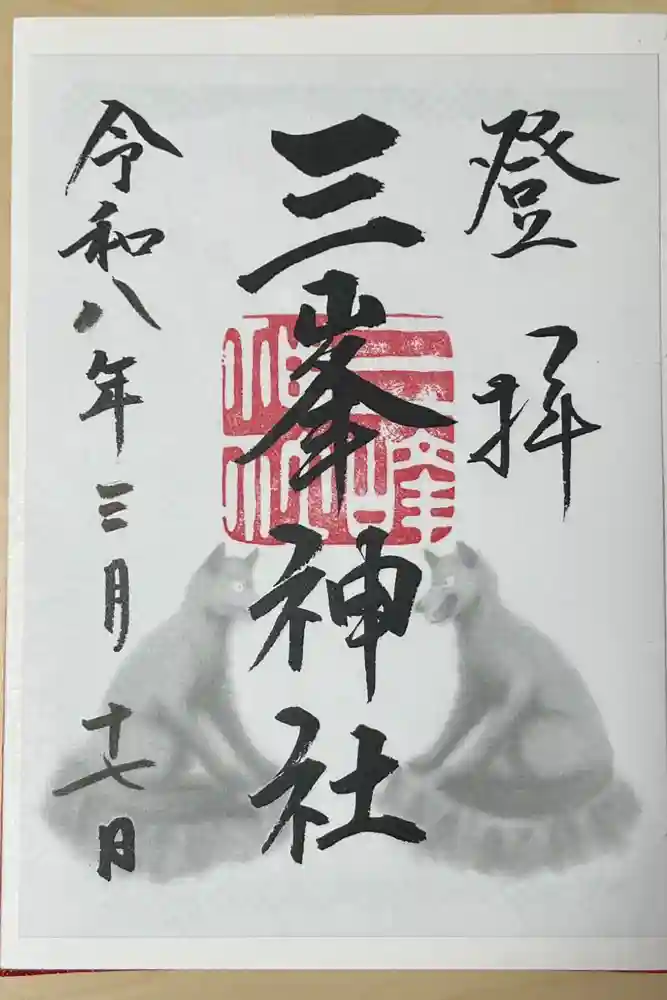 登拝
三峯神社
令和八年三月十七日